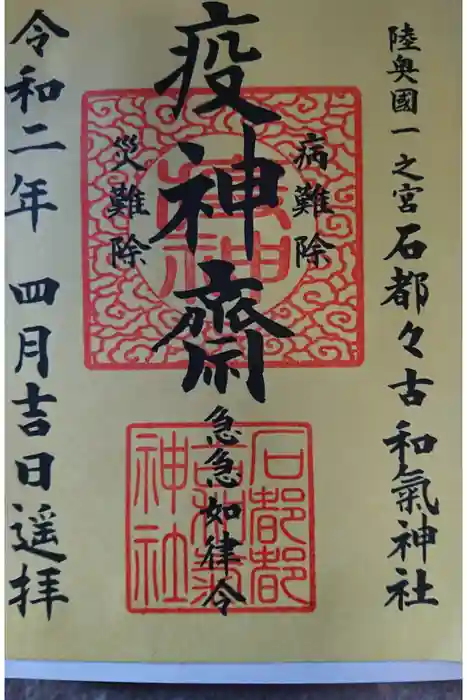 陸奥國一之宮石都々古和氣神社
病難除
疫神齋
災難除
急急如律令
令和二年 四月吉日遥拝
石都都
古和氣
神社